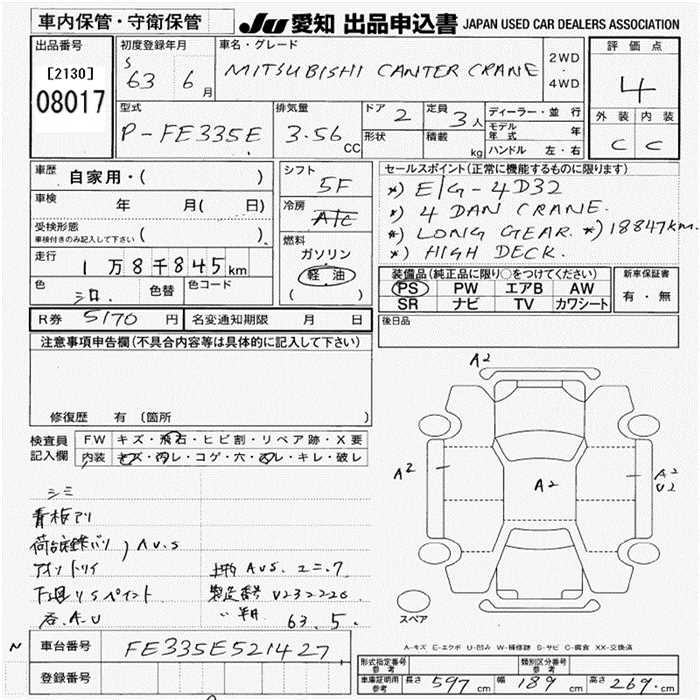 車内保管・守衛保管 JU愛知 出品申込書 JAPAN USED CAR DEALERS ASSOCIATION
出品番号 初度登録年月 車名・グレード 評価点
[2130] S 63 6月 MITSUBISHI CANTER CRANE 2WD・4WD 4
08017 型式 排気量 ドア 2 定員 3人 ディーラー・並行 外装 内装
P-FE335E 3.56 CC 形状 積載 kg モデル年式 年 C C
ハンドル 左・右
車歴 自家用・( ) シフト 5F セールスポイント(正常に機能するものに限ります)
車検 年 月( 日) 冷房 A/C *) E/G-4D32
*) 4 DAN CRANE.
受検形態 車検付きのみ記入して下さい ( ) 燃料 *) LONG GEAR. *) 18847km.
走行 1万8千845km ガソリン *) HIGH DECK.
色 シロ. 色替 色コード 軽油 ( )
装備品(純正品に限り○をつけてください) 新車保証書
PS PW エアB AW 有・無
SR ナビ TV カワシート
R券 5170 円 名変通知期限 月 日 後日品
注意事項申告欄(不具合内容等は具体的に記入して下さい)
修復歴 有 (箇所 )
検査員記入欄 FW キズ・飛石・ヒビ割・リペア跡・X要
内装 キズ・汚レ・コゲ・穴・凹レ・キレ・破レ
A2
A2 A2 A2
U2
シミ
サビ
下廻りSペイント 製造番号 V232226
63.5.
スペア
A-キズ E-エクボ U-凹み W-補修跡 S-サビ C-腐食 XX-交換済
N 車台番号 FE335E521427
登録番号
形式指定番号 参考 類別区分番号 参考
車庫証明用 参考 長さ 597cm 幅 189cm 高さ 269cm